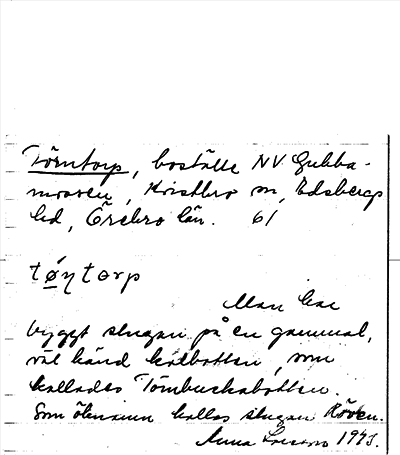 Törntorp, boställe NV Gubba-
mossen, Kvistbro sn, Edsbergs
hd, Örebro län. 61
tǿƞtorp
Man har
byggt stugan på en gammal,
väl känd kolbotten, som
kallades Törnbuskabotten.
Som öknamn kallas stugan Röven.
Anna Larsson 1943.